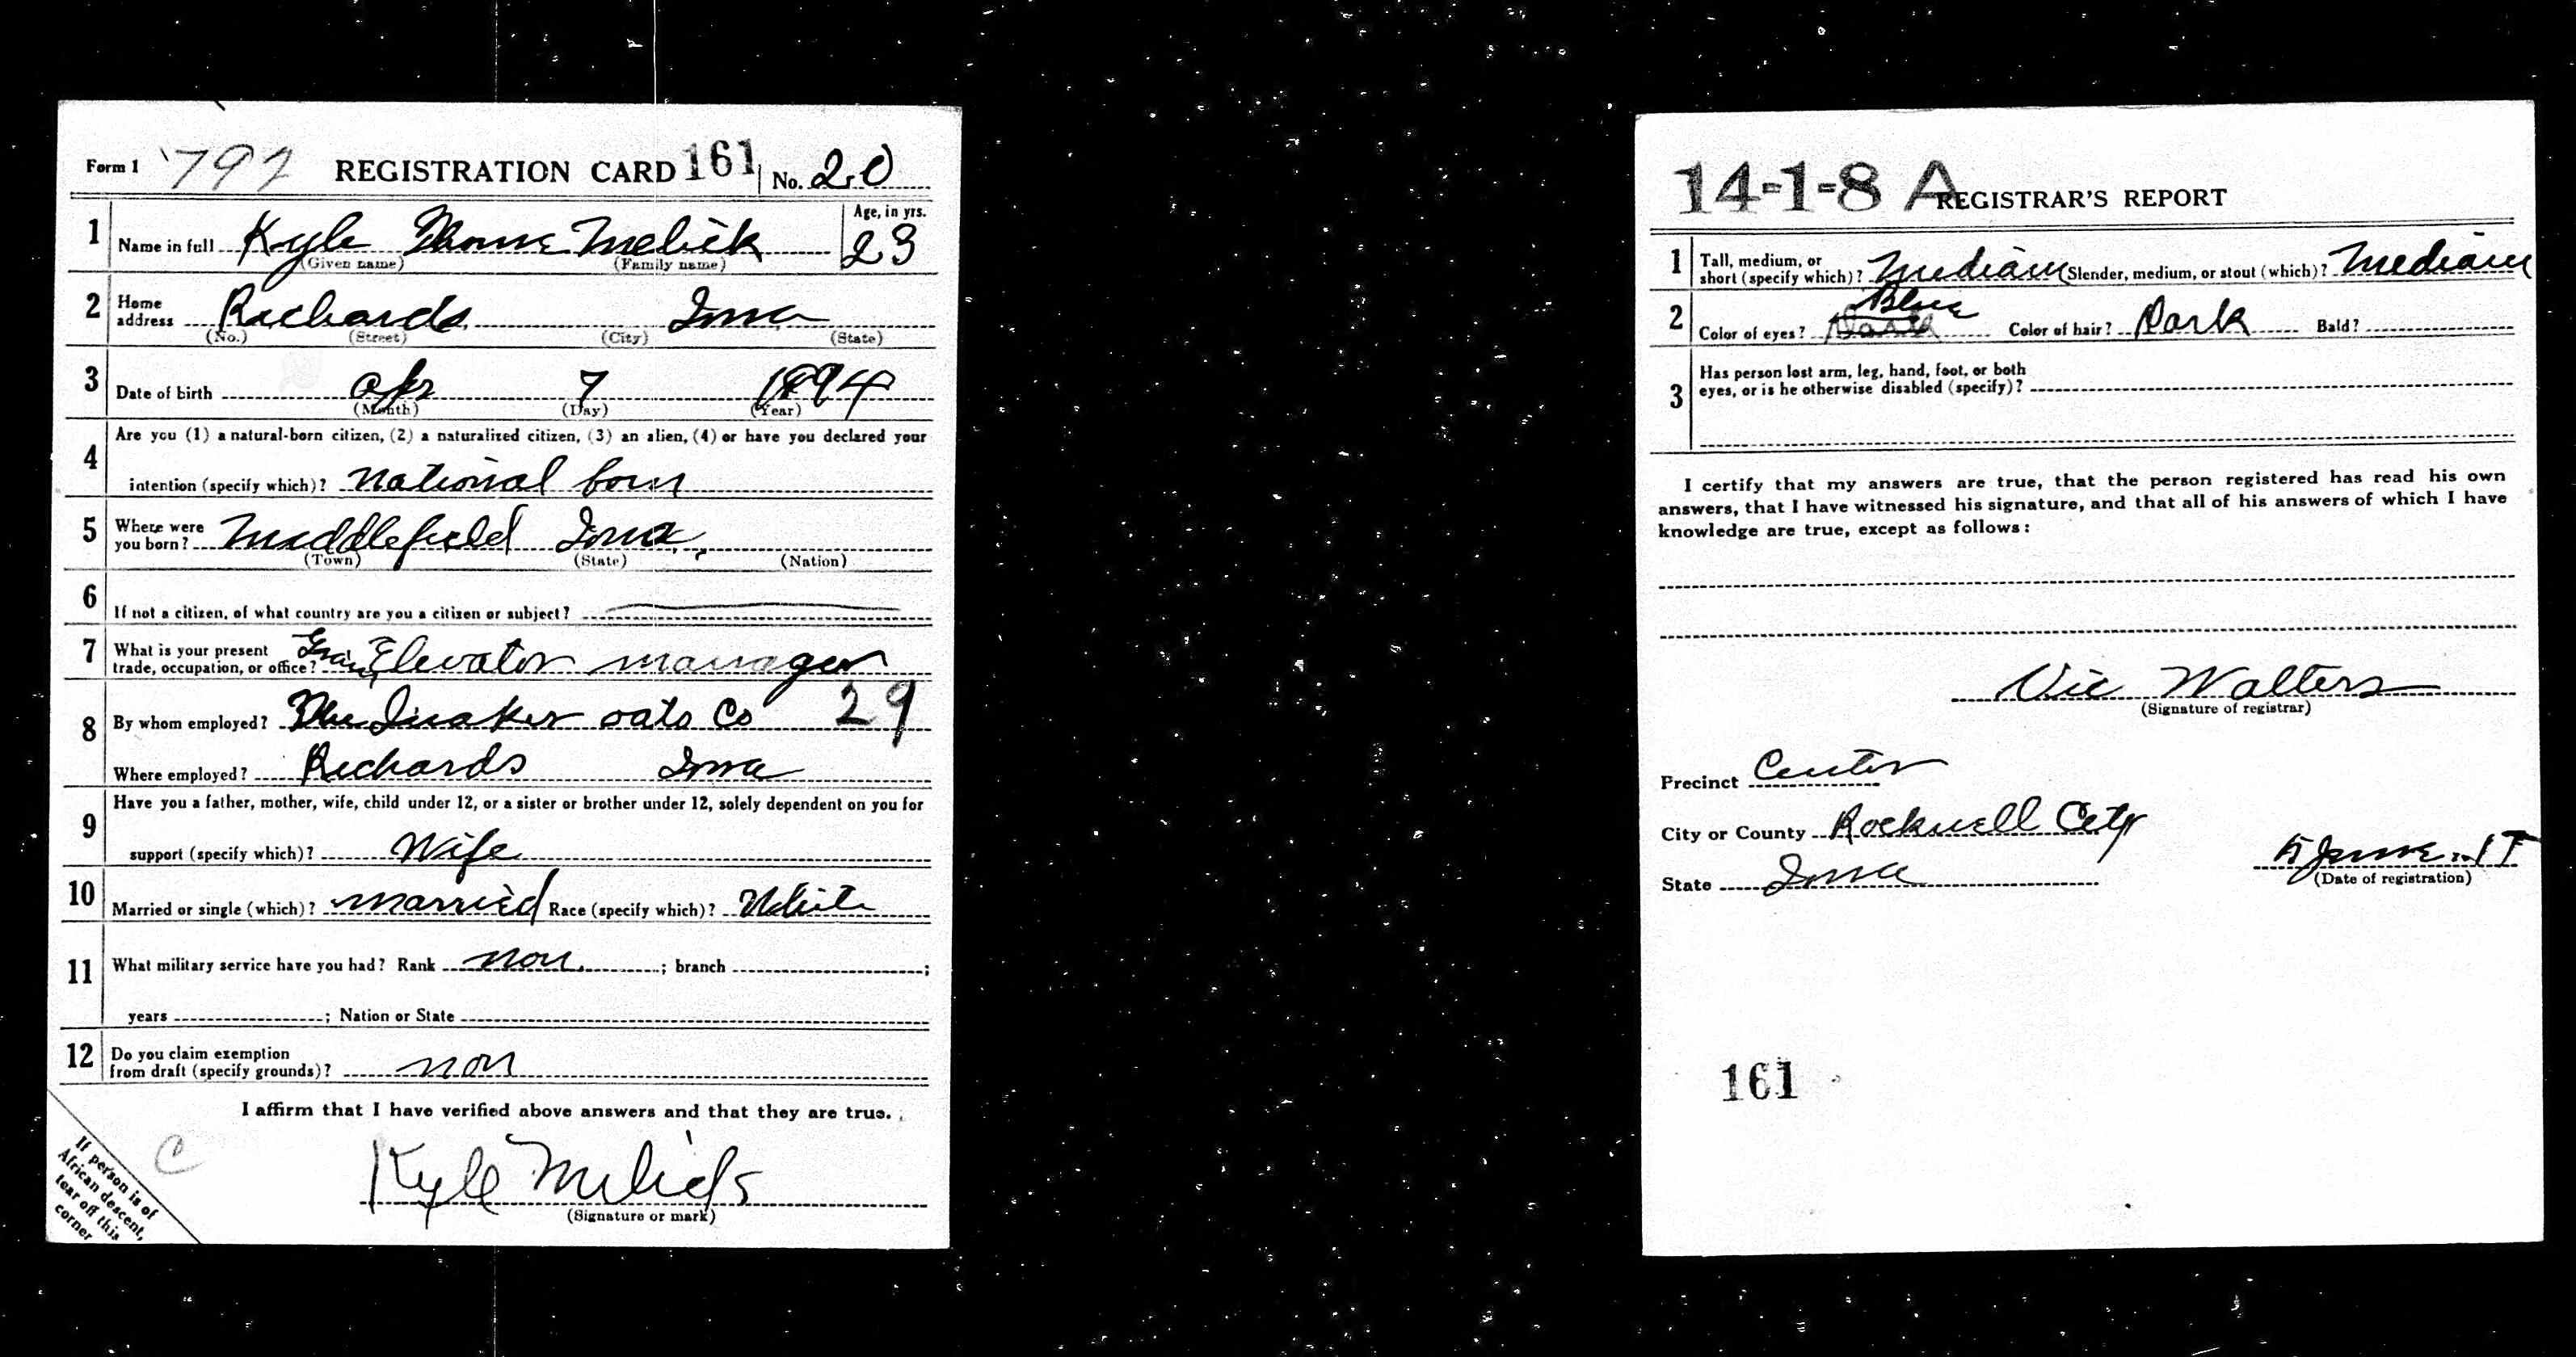 Form 1 797 REGISTRATION CARD 161 No. 20
1 Name in full Kyle Thorne Melick Age, in yrs. 23
(Given name) (Family name)
2 Home address Richards Iowa
(No.) (Street) (City) (State)
3 Date of birth Apr 7 1894
(Month) (Day) (Year)
4 Are you (1) a natural-born citizen, (2) a naturalized citizen, (3) an alien, (4) or have you declared your
intention (specify which)? National born
5 Where were you born? Middlefield Iowa
(Town) (State) (Nation)
6 If not a citizen, of what country are you a citizen or subject?
7 What is your present trade, occupation, or office? Grain Elevator manager
8 By whom employed? The Quaker oats Co 29
Where employed? Richards Iowa
9 Have you a father, mother, wife, child under 12, or a sister or brother under 12, solely dependent on you for
support (specify which)? Wife
10 Married or single (which)? married Race (specify which)? White
11 What military service have you had? Rank non ; branch ;
years ; Nation or State
12 Do you claim exemption from draft (specify grounds)? non
I affirm that I have verified above answers and that they are true.
C
Kyle Melick
(Signature or mark)
If person is of
African descent,
tear off this
corner
14-1-8 A REGISTRAR'S REPORT
1 Tall, medium, or short (specify which)? Medium Slender, medium, or stout (which)? Medium
Blue
2 Color of eyes? Dark Color of hair? Dark Bald?
3 Has person lost arm, leg, hand, foot, or both
eyes, or is he otherwise disabled (specify)?
I certify that my answers are true, that the person registered has read his own
answers, that I have witnessed his signature, and that all of his answers of which I have
knowledge are true, except as follows:
Vic Walters
(Signature of registrar)
Precinct Center
City or County Rockwell City
State Iowa 5 June - 17
(Date of registration)
161